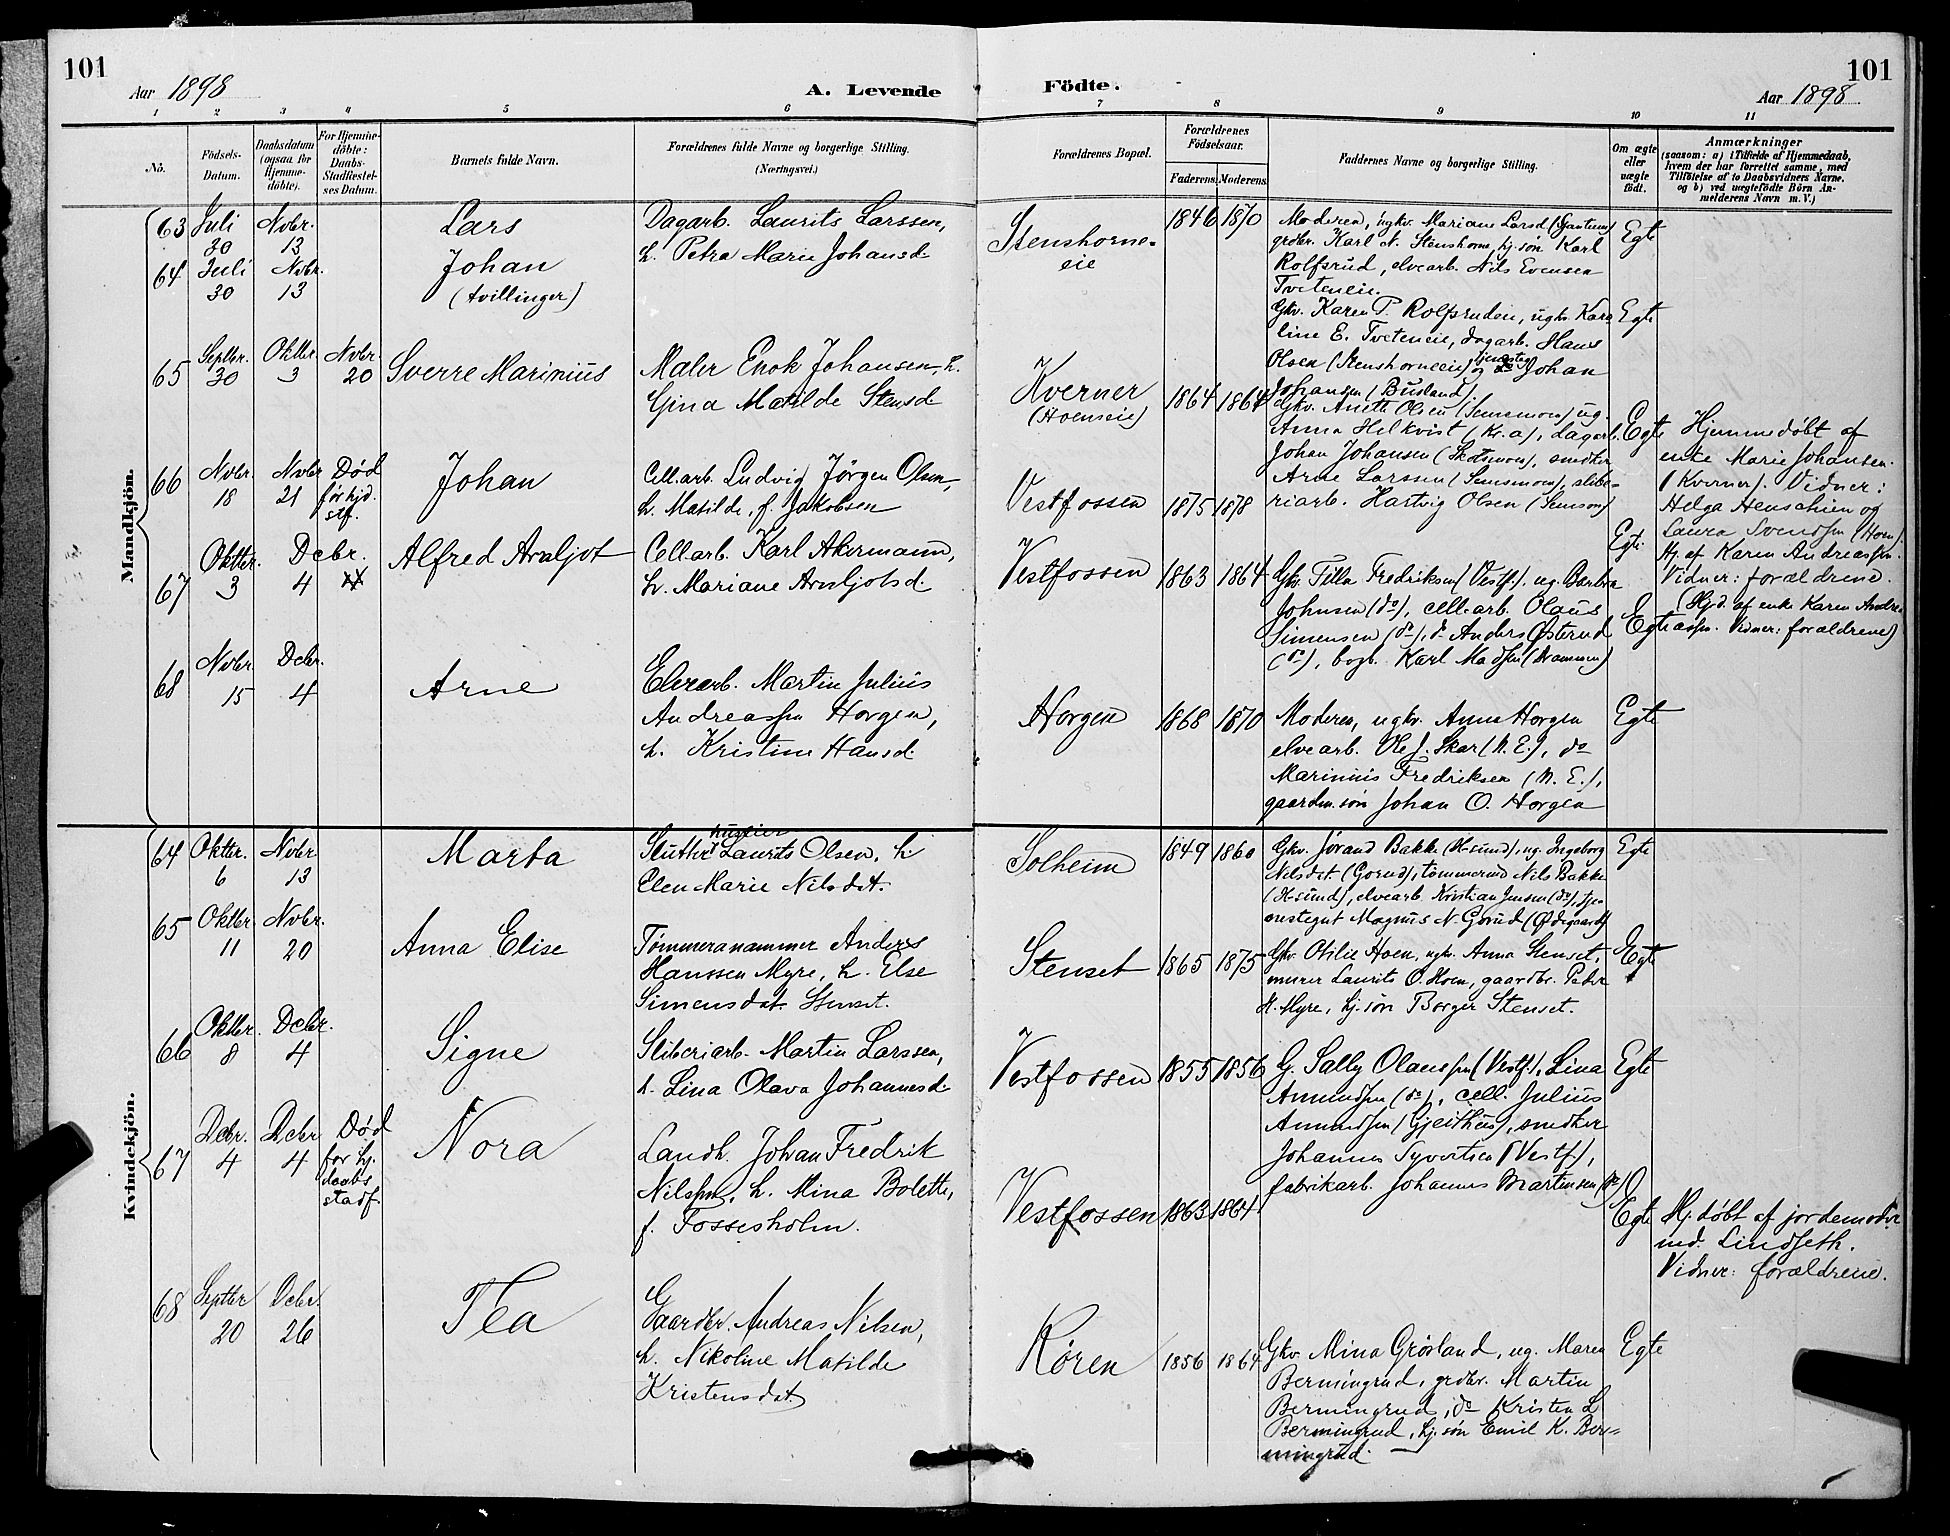 101
Aar 1898
A. Levende
Födte.
101
Aar 1898
1 2 3 4 5 6 7 8 9 10 11
No.
Födsels-
Datum.
Daabsdatum
(ogsaa for
Hjemme-
döbte).
For Hjemme-
döbte:
Daabs-
Stadfæstel-
ses Datum.
Barnets fulde Navn.
Forældrenes fulde Navne og borgerlige Stilling.
(Næringsvei.)
Forældrenes Bopæl.
Forældrenes
Födselsaar.
Faderens. Moderens.
Faddernes Navne og borgerlige Stilling.
Om ægte
eller
uægte
födt.
Anmærkninger
(saasom: a) i Tilfælde af Hjemmedaab,
hvem der har forrettet samme, med
Tilföielse af to Daabsvidners Navne.
og b) ved uægtefödte Börn An-
melderens Navn m. V.)
Mandkjön.
63 Juli 30
Nvbr. 13
Lars
Dagarb. Laurits Larssen,
h. Petra Marie Johansd.
Stenshorne-
eie
1846 1870
Moderen, ugkv. Mariane Larsd
grdbr. Karl N. Stenshorne, hj. søn Karl
Rolfsrud, elvearb. Nils Evensen
Tveteneie.
Egte
64 Juli 30
Nvbr. 13
Johan
(tvillinger)
Gkv. Karen P. Rolfsruden, ugkv. Karo
line E. Tveteneie, dagarb. Hans
Olsen (Stenshorneeie) og tjenesteg Johan
Johansen (Busland).
Egte
65 Septbr. 30
Oktbr. 3
Nvbr. 20
Sverre Marinius
Maler Enok Johansen, h.
Gina Matilde Stensd.
Kverner
(Hoenseie)
1864 1864
Gkv. Anette Olsen (Semsmoen) ug.
Anna Helkvist (Kr.a), dagarb.
Johan Johansen (Skotsmoen), snedker
Arne Larssen (Semsmoen), slibe-
riarb. Hartvig Olsen (Semsm)
Egte
Hjemmedöbt af
enke Marie Johansen
(Kverner). Vidner:
Helga Henschien og
Laura Svendsen (Hoen).
66 Nvbr. 18
Nvbr. 21
Död
för hjd.
stf.
Johan
Cell.arb. Ludvig Jørgen Olsen,
h. Matilde, f. Jakobsen
Vestfossen
1875 1878
Egte
Hj. af Karen Andreassen.
Vidner: forældrene.
67 Oktbr. 3
Dcbr. 4
Alfred Arnljot
Cellarb. Karl Akermann,
h. Mariane Arnljotsd.
Vestfossen
1863 1864
Gkv. Tilla Fredriksen (Vestf.), ug. Barbra
Johnsen (do), cell.arb. Olaus
Simensen (do), do Anders Østerud
(do), bogb. Karl Madsen (Drammen)
Egte
(Hjd. af enke Karen Andre
assen. Vidner: forældrene)
68 Nvbr. 15
Dcbr. 4
Arne
Elvearb. Martin Julius
Andreassen Horgen,
h. Kristine Hansd.
Horgen
1868 1870
Moderen, ugkv. Anna Horgen
elvearb. Ole J. Skar (N. E.), do
Marinius Fredriksen (N. E.),
gaardm.søn Johan O. Horgen
Egte
Kvindekjön.
64 Oktbr. 6
Nvbr. 13
Marta
huseier
Slutter Laurits Olsen, h.
Elen Marie Nilsdat.
Solheim
1849 1860
Gkv. Jørand Bakke (H-sund), ug. Ingeborg
Nilsdat. (Gorud), tømmermd Nils Bakke
(H-sund), elvearb. Kristian Jensen (do), tje-
nestegut Magnus N. Gorud (Ødegaard)
Egte
65 Oktbr. 11
Nvbr. 20
Anna Elise
Tømmeranammer Anders
Hanssen Myre, h. Else
Simensdat. Stenset.
Stenset
1865 1875
Gkv. Otilie Hoen, ugkv. Anna Stenset,
murer Laurits O. Hoen, gaardbr. Peder
H. Myre, hj. søn Borger Stenset.
Egte
66 Oktbr. 8
Dcbr. 4
Signe
Sliberiarb. Martin Larssen,
h. Lina Olava Johannesd.
Vestfossen
1855 1856
G. Sally Olaussen (Vestf.), Lina
Amundsen (do), cell. Julius
Amundsen (Gjeithus), snedker
Johannes Syvertsen (Vestf),
fabrikarb. Johannes Martinsen (do)
Egte
67 Dcbr. 4
Dcbr. 4
Död
for hj.
daabs
stadf.
Nora
Landh. Johan Fredrik
Nilssen, h. Mina Bolette,
f. Fossesholm.
Vestfossen
1863 1864
Egte
Hj. døbt af jordemoder
md. Lindseth.
Vidner: forældrene.
68 Septbr 20
Dcbr. 26
Tea
Gaardbr. Andreas Nilsen,
h. Nikoline Matilde
Kristensdat.
Røren
1856 1864
Gkv. Mina Grøsland, ug. Maren
Bermingrud, grdbr. Martin
Bermingrud, do Kristen L
Bermingrud, hj. søn Emil K. Ber-
mingrud.
Egte